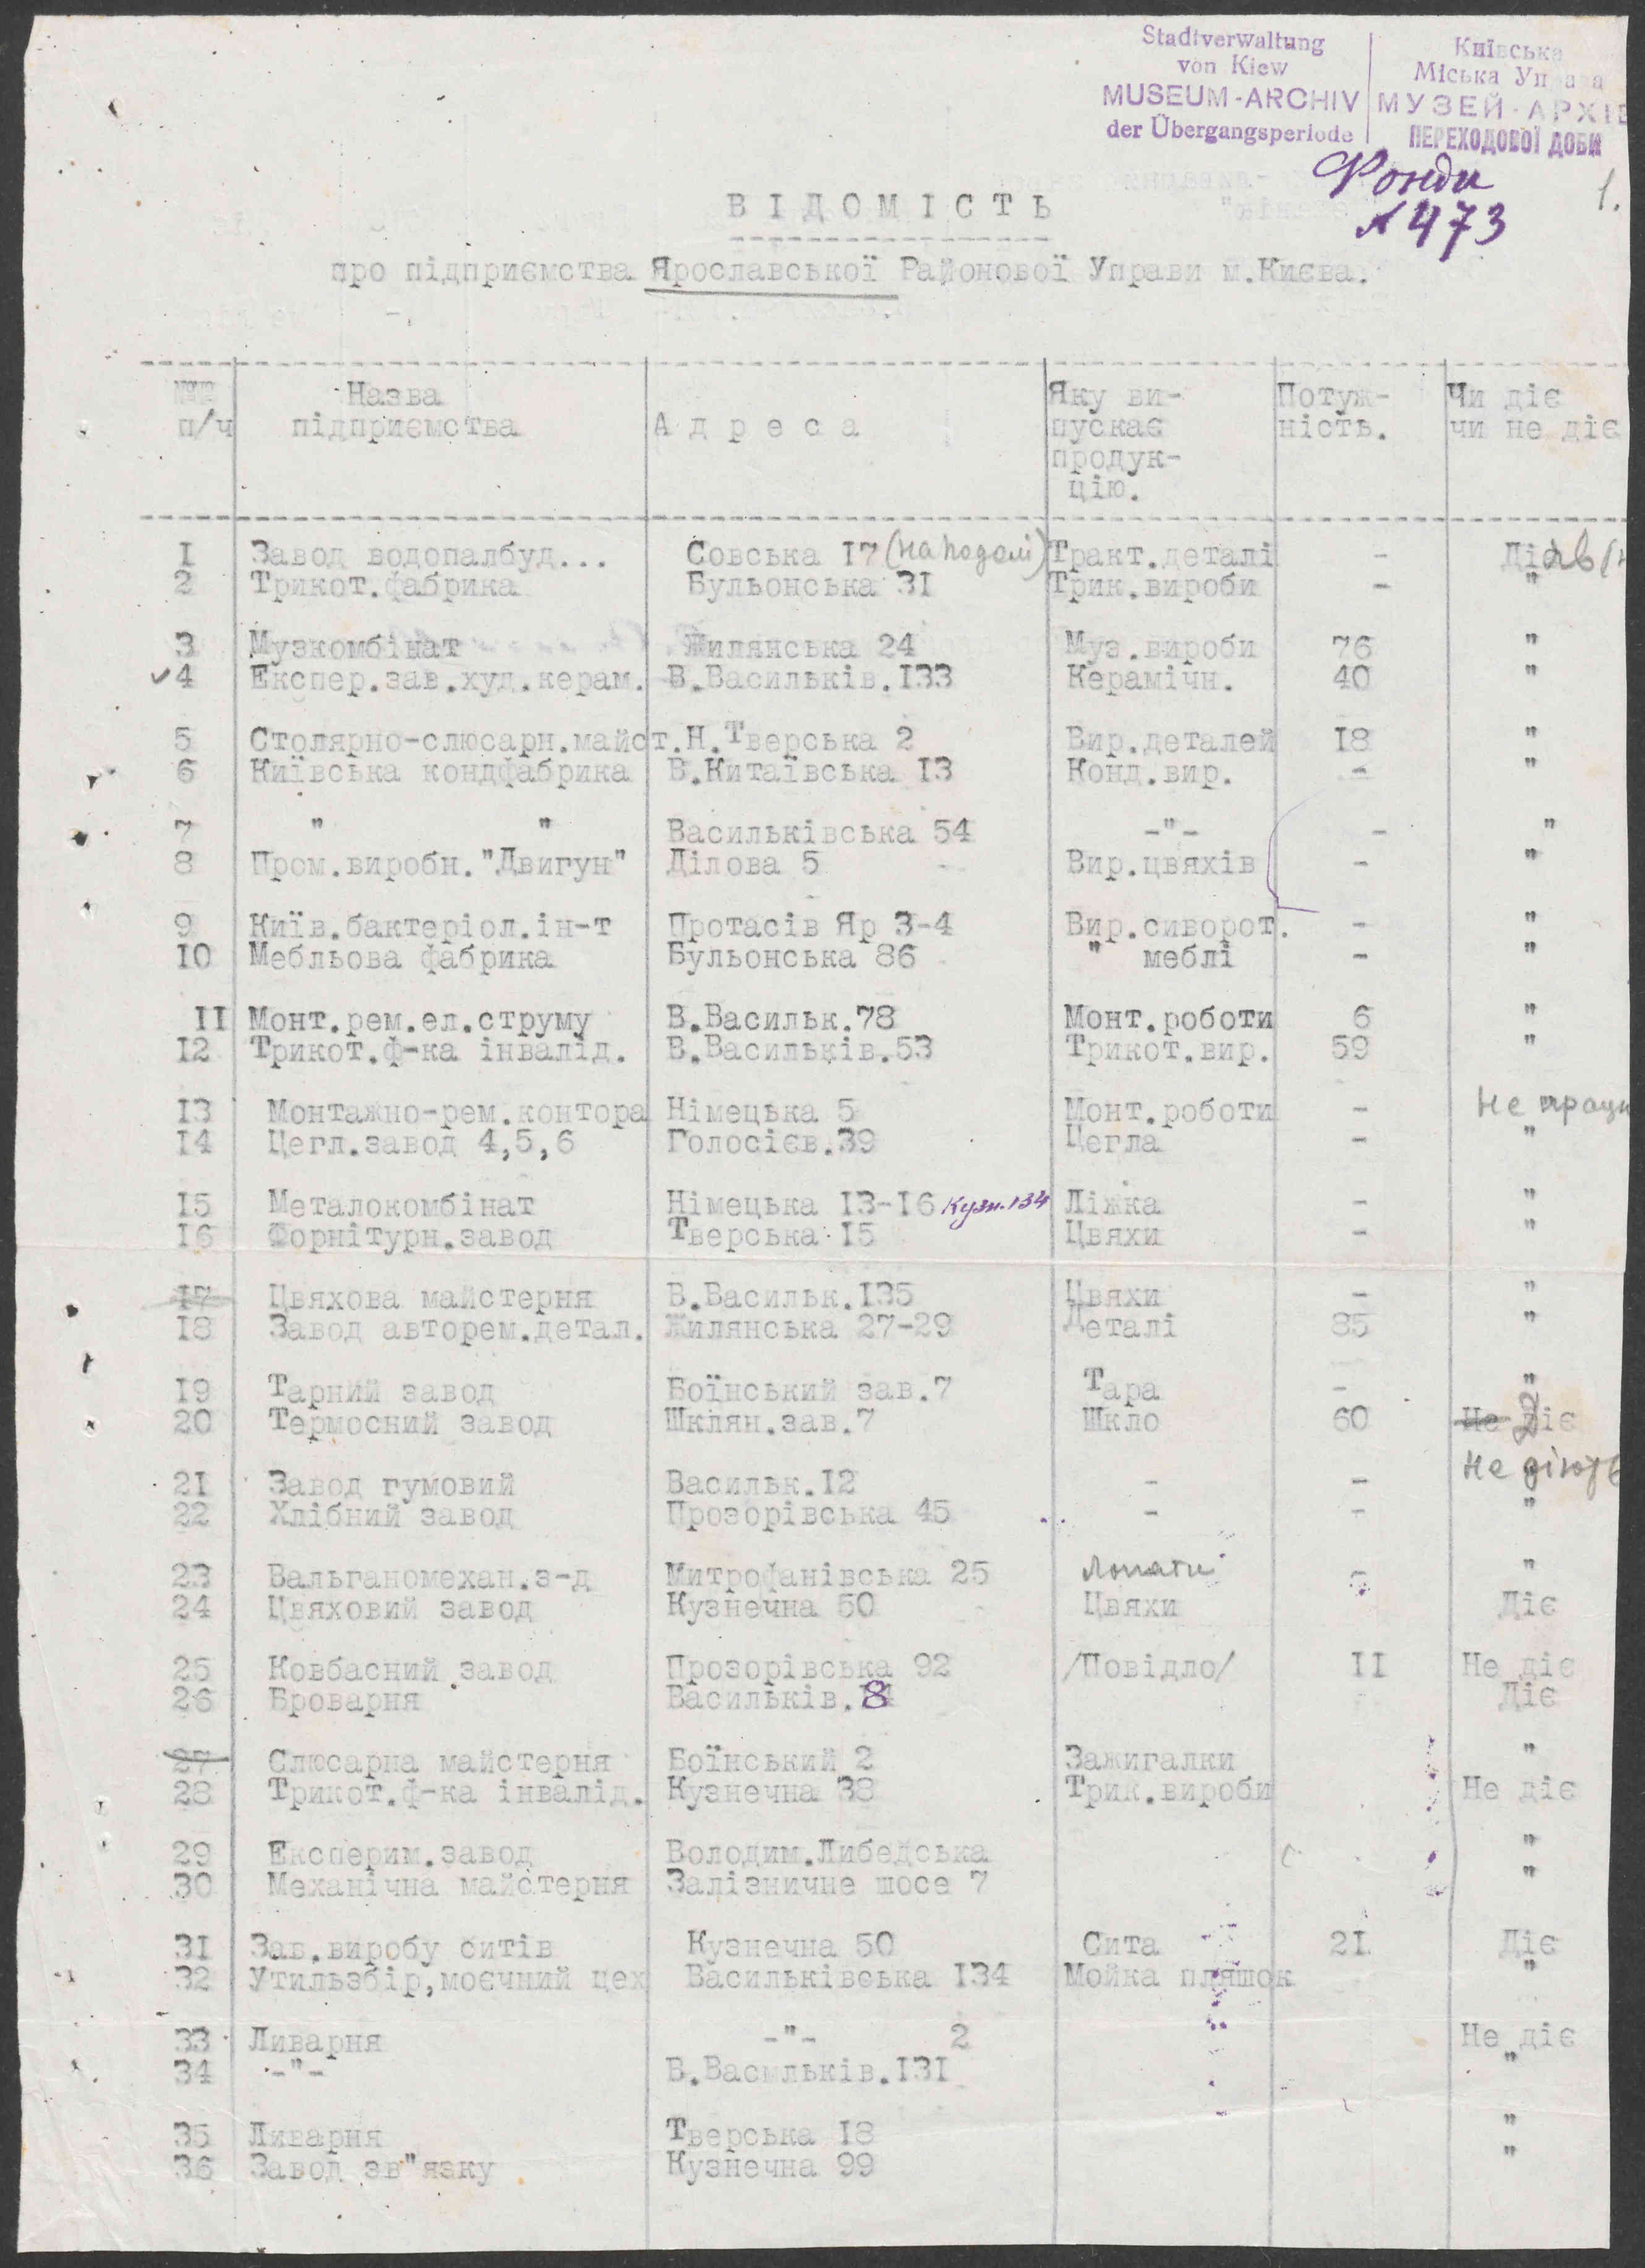 Stadtverwaltung
von Kiew
MUSEUM-ARCHIV
der Übergangsperiode
Київська
Міська Управа
МУЗЕЙ-АРХІВ
ПЕРЕХОДОВОЇ ДОБИ
Фонди
№ 473
1.
ВІДОМІСТЬ
про підприємства Ярославської Районової Управи м.Києва.
№№ п/ч Назва підприємства Адреса Яку ви-пускає продук-цію. Потуж-ність. Чи діє чи не діє
1 Завод водопалбуд... Совська 17 (на Подолі) Тракт.деталі - Ді
2 Трикот.фабрика Бульонська 31 Трик.вироби - "
3 Музкомбінат Жилянська 24 Муз.вироби 76 "
✓4 Експер.зав.худ.керам. В.Васильків.133 Керамічн. 40 "
5 Столярно-слюсарн.майст. Н.Тверська 2 Вир.деталей 18 "
6 Київська кондфабрика В.Китаївська 13 Конд.вир. - "
7 " " Васильківська 54 -"- - "
8 Пром.виробн."Двигун" Ділова 5 Вир.цвяхів - "
9 Київ.бактеріол.ін-т Протасів Яр 3-4 Вир.сиворот. - "
10 Мебльова фабрика Бульонська 86 " меблі - "
11 Монт.рем.ел.струму В.Васильк.78 Монт.роботи 6 "
12 Трикот.ф-ка інвалід. В.Васильків.53 Трикот.вир. 59 "
13 Монтажно-рем.контора Німецька 5 Монт.роботи - Не працю
14 Цегл.завод 4,5,6 Голосієв.39 Цегла - "
15 Металокомбінат Німецька 13-16 Кузн.134 Ліжка - "
16 Форнітурн.завод Тверська 15 Цвяхи - "
17 Цвяхова майстерня В.Васильк.135 Цвяхи - "
18 Завод авторем.детал. Жилянська 27-29 Деталі 85 "
19 Тарний завод Боїнський зав.7 Тара - "
20 Термосний завод Шклян.зав.7 Шкло 60 Не діє
21 Завод гумовий Васильк.12 - - Не діють
22 Хлібний завод Прозорівська 45 - - "
23 Вальганомехан.з-д Митрофанівська 25 Лопати - "
24 Цвяховий завод Кузнечна 50 Цвяхи Діє
25 Ковбасний завод Прозорівська 92 /Повідло/ 11 Не діє
26 Броварня Васильків.8 Діє
27 Слюсарна майстерня Боїнський 2 Зажигалки "
28 Трикот.ф-ка інвалід. Кузнечна 38 Трик.вироби Не діє
29 Експерим.завод Володим.Либедська "
30 Механічна майстерня Залізничне шосе 7 "
31 Зав.виробу ситів Кузнечна 50 Сита 21 Діє
32 Утильзбір,моєчний цех Васильківська 134 Мойка пляшок "
33 Ливарня -"- 2 Не діє
34 -"- В.Васильків.131 "
35 Ливарня Тверська 18 "
36 Завод зв"язку Кузнечна 99 "